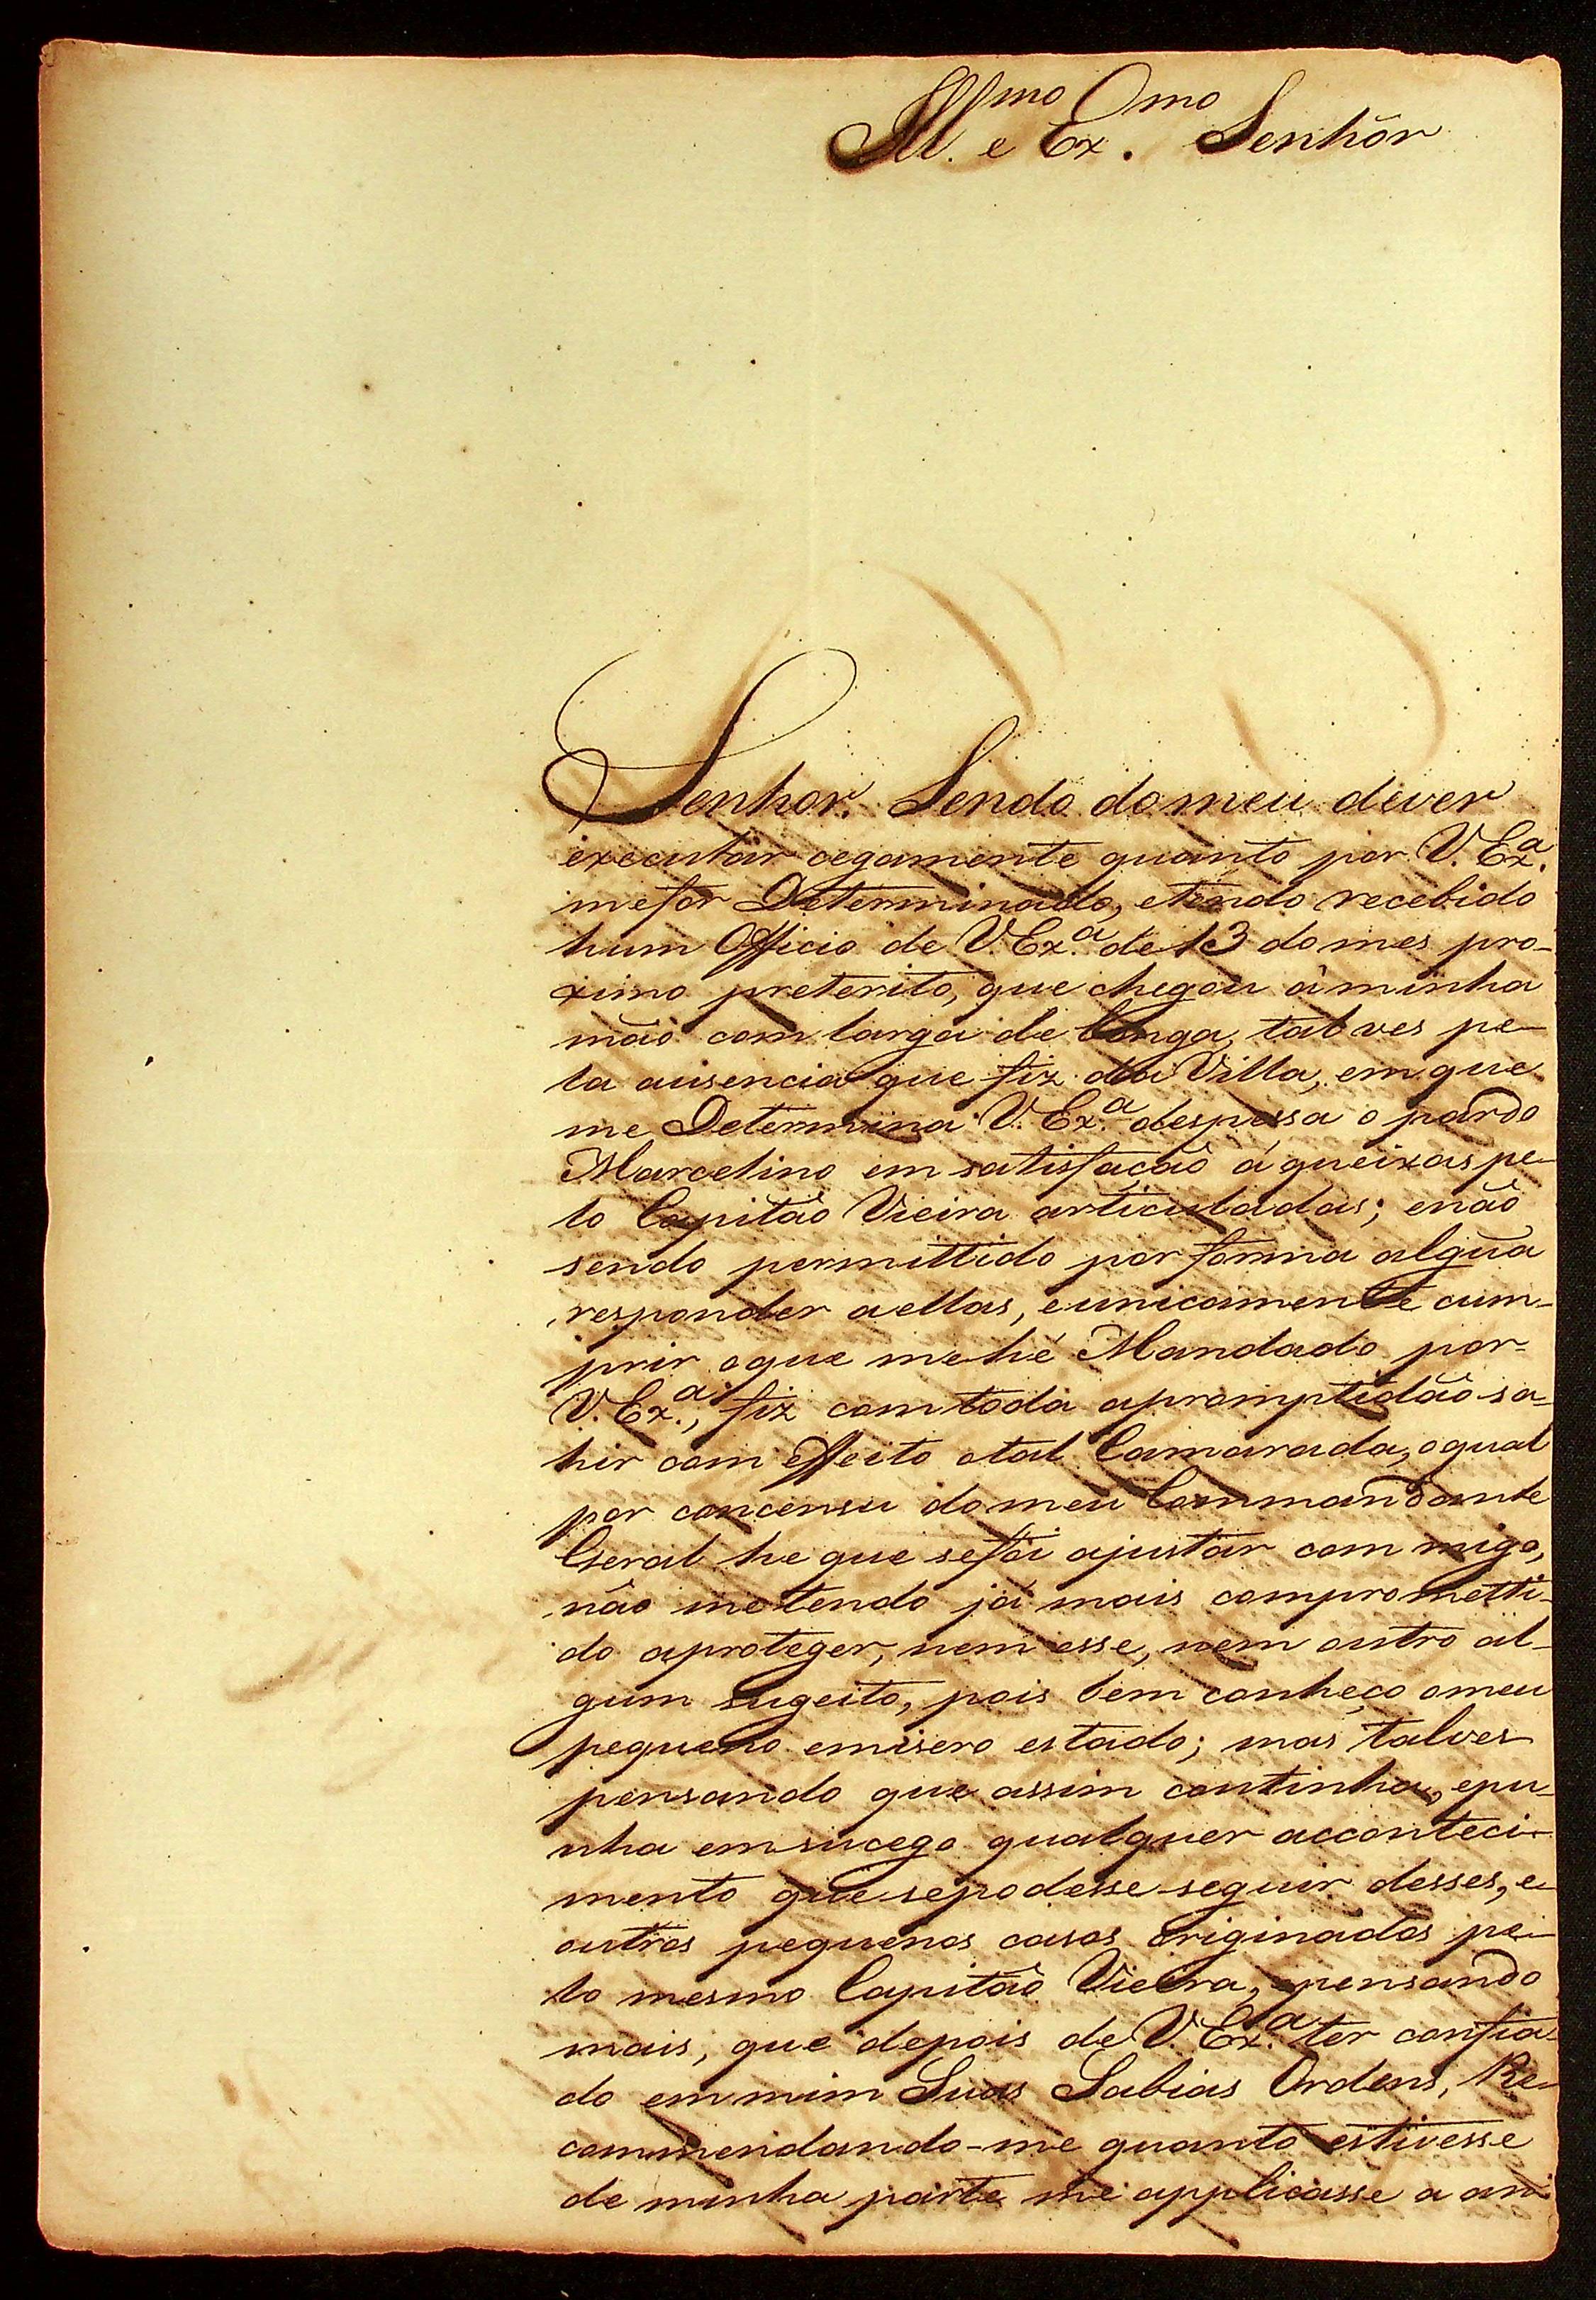 Ill.mo e Ex.mo Senhôr
Senhor. Sendo do meu dever
executar cegamente quanto por V. Ex.a
mefor Determinado, etendo recebido
hum Officio de V. Ex.a de 13 do mes pro-
ximo preterito, que chegou á minha
mão com larga de longa, talves pe-
la ausencia que fiz da Villa, em que
me Determina V. Ex.a despessa o pardo
Marcelino em satisfação á queixas pe-
lo Capitão Vieira articuladas; enão
sendo permittido por forma algũa
responder aellas, eunicamente cum-
prir oque mehé Mandado por-
V. Ex.a, fiz comtoda apromptidão sa-
hir com effeito otal Camarada, oqual
por concensu domeu Commandante
Geral he que sefoi ajustar com migo,
não metendo já mais comprometti-
do aproteger, nem esse, nem outro al-
gum sugeito, pois bem conheço omeu
pequeno emisero estado; mas talves
pensando que assim continha, epu-
nha emsucego qualquer acconteci-
mento que sepodesse seguir desses, e
outros pequenos casos originados pe-
lo mesmo Capitão Vieira, epensando
mais, que depois de V. Ex.a ter confia-
do emmim Suas Sabias Ordens, Re-
commendando-me quanto estivesse
de minha parte me applicasse a ani